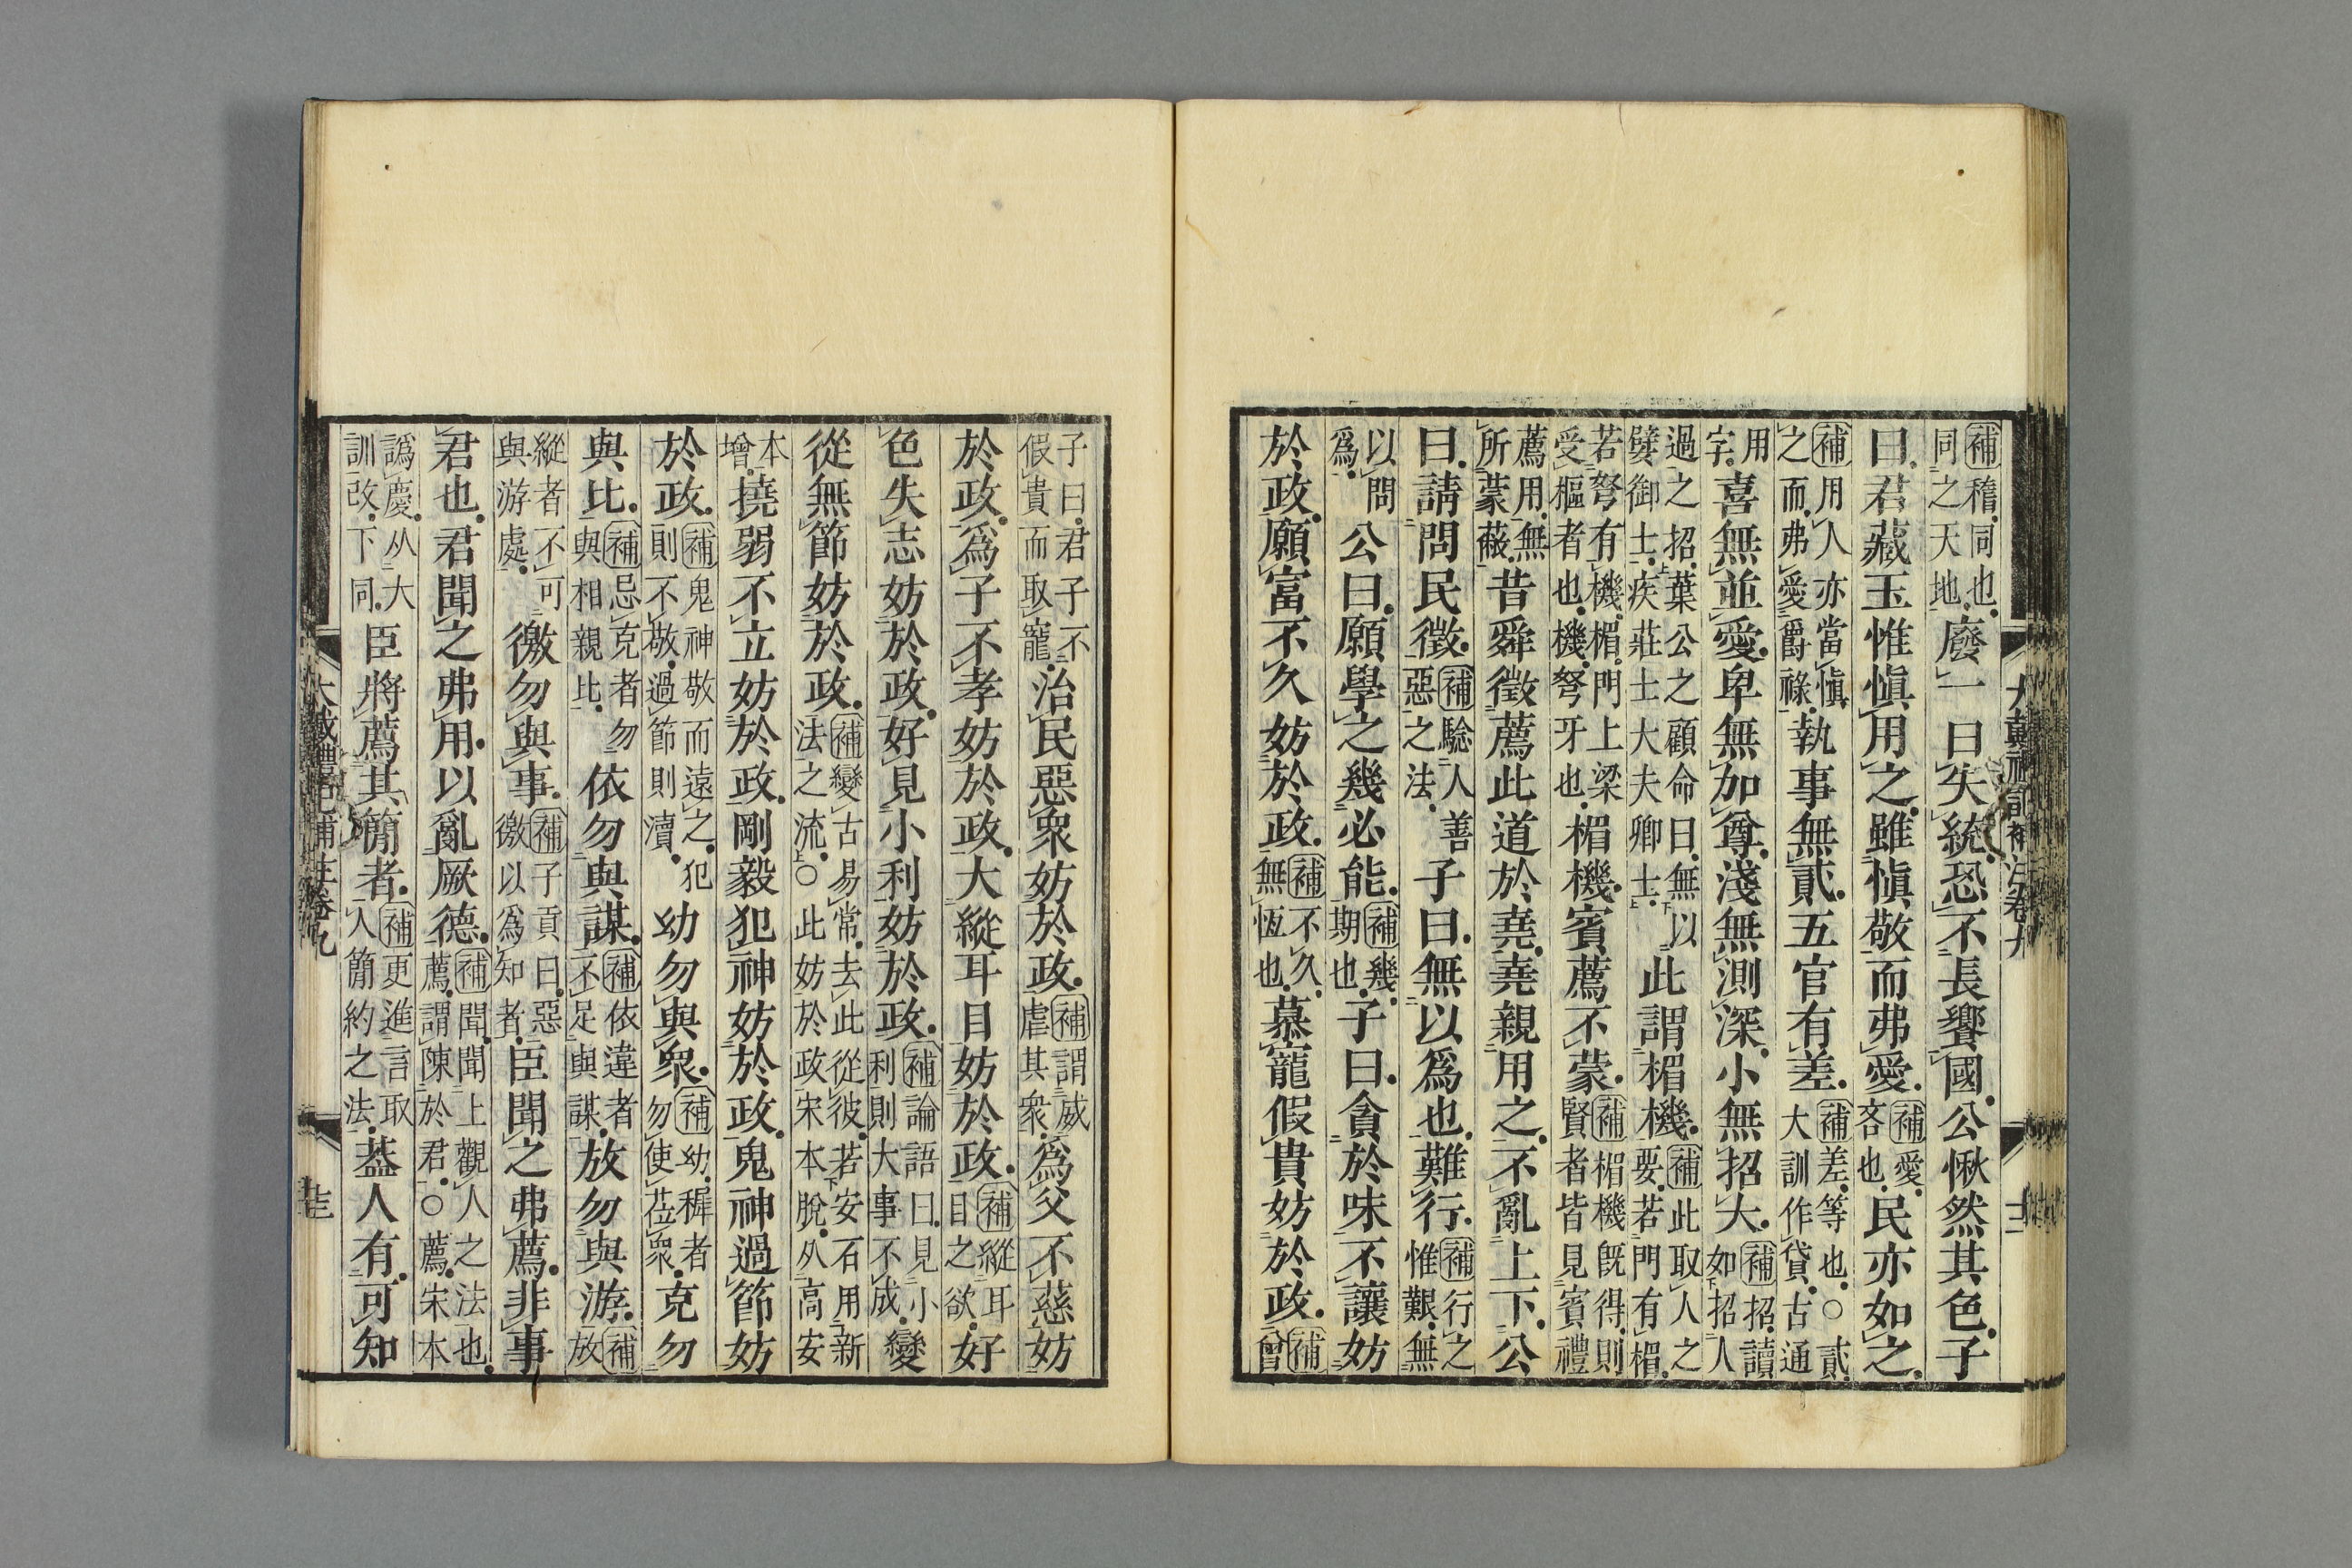 補稽同也
同之天地廢一曰失統恐不長饗國公愀然其色子
曰君藏玉惟愼用之雖愼敬而弗愛補愛
吝也民亦如之
補用人亦當愼
之而弗愛爵祿執事無貳五官有差補差等也○貳
大訓作貸古通
用
字喜無並愛卑無加尊淺無測深小無招大補招讀
如招人
過之招葉公之顧命曰無以
嬖御士疾莊士大夫卿士此謂楣機補此取人之
要若門有楣
若弩有機楣門上梁
受樞者也機弩牙也楣機賓薦不蒙補楣機旣得則
賢者皆見賓禮
薦用無
所蒙蔽昔舜徵薦此道於堯堯親用之不亂上下公
曰請問民徵補驗人善
惡之法子曰無以爲也難行補行之
惟艱無
以問
爲公曰願學之幾必能補幾
期也子曰貪於味不讓妨
於政願富不久妨於政補不久
無恆也慕寵假貴妨於政補
曾
子曰君子不
假貴而取寵治民惡衆妨於政補謂威
虐其衆爲父不慈妨
於政爲子不孝妨於政大縱耳目妨於政補縱耳
目之欲好
色失志妨於政好見小利妨於政補論語曰見小
利則大事不成變
從無節妨於政補變古易常去此從彼若安石用新
法之流○此妨於政宋本脫从高安
本
增撓弱不立妨於政剛毅犯神妨於政鬼神過節妨
於政補鬼神敬而遠之犯
則不敬過節則瀆幼勿與衆補幼穉者
勿使莅衆克勿
與比補忌克者勿
與相親比依勿與謀補依違者
不足與謀放勿與游補
放
縱者不可
與游處徼勿與事補子貢曰惡
徼以爲知者臣聞之弗薦非事
君也君聞之弗用以亂厥德補聞聞上觀人之法也
薦謂陳於君○薦宋本
譌慶从大
訓改下同臣將薦其簡者補更進言取
人簡約之法葢人有可知
大戴禮記補注卷九
十二
大戴禮記補注卷九
十三